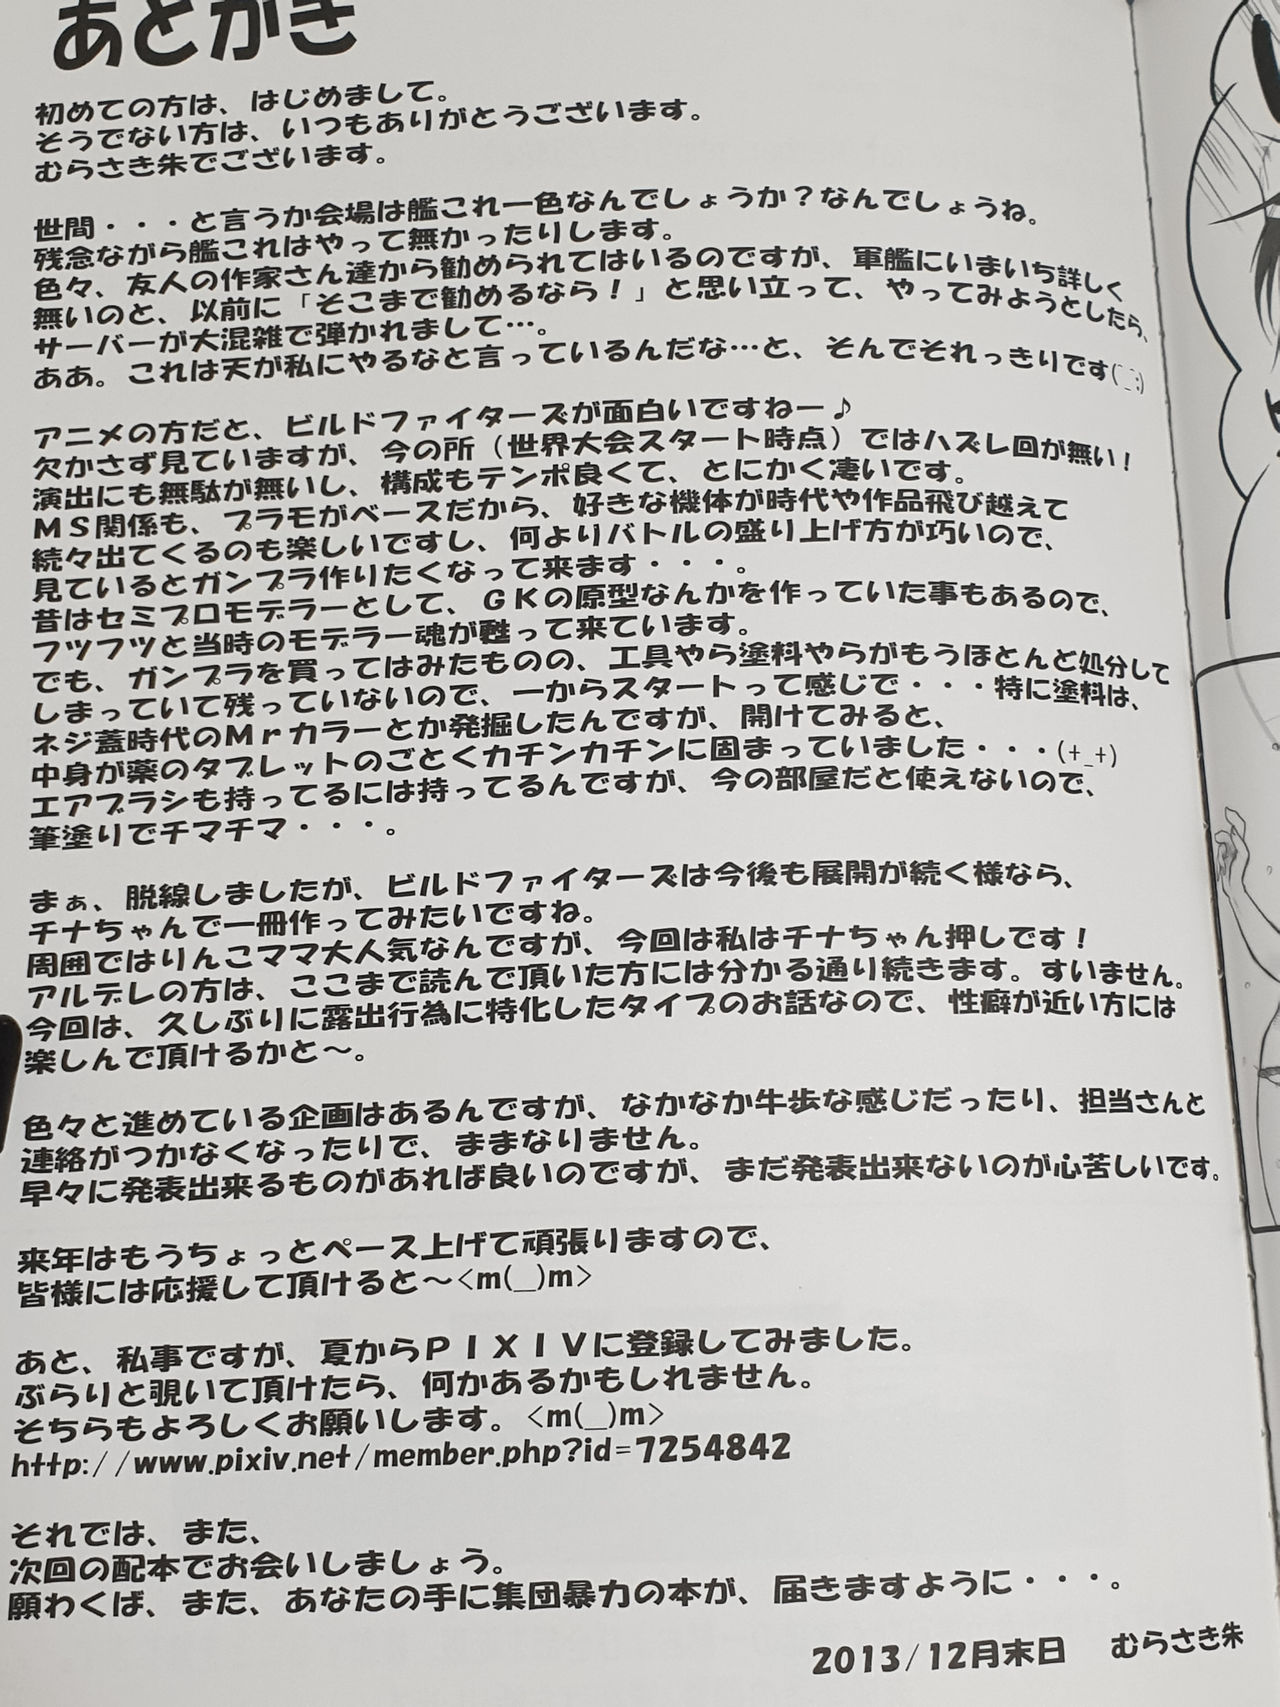 あとがき
初めての方は、はじめまして。
そうでない方は、いつもありがとうございます。
むらさき朱でございます。
世間・・・と言うか会場は艦これ一色なんでしょうか？なんでしょうね。
残念ながら艦これはやって無かったりします。
色々、友人の作家さん達から勧められてはいるのですが、軍艦にいまいち詳しく
無いのと、以前に「そこまで勧めるなら！」と思い立って、やってみようとしたら、
サーバーが大混雑で弾かれまして…。
ああ。これは天が私にやるなと言っているんだな…と、そんでそれっきりです(-_-;)
アニメの方だと、ビルドファイターズが面白いですねー♪
欠かさず見ていますが、今の所（世界大会スタート時点）ではハズレ回が無い！
演出にも無駄が無いし、構成もテンポ良くて、とにかく凄いです。
ＭＳ関係も、プラモがベースだから、好きな機体が時代や作品飛び越えて
続々出てくるのも楽しいですし、何よりバトルの盛り上げ方が巧いので、
見ているとガンプラ作りたくなって来ます・・・。
昔はセミプロモデラーとして、ＧＫの原型なんかを作っていた事もあるので、
フツフツと当時のモデラー魂が甦って来ています。
でも、ガンプラを買ってはみたものの、工具やら塗料やらがもうほとんど処分して
しまっていて残っていないので、一からスタートって感じで・・・特に塗料は、
ネジ蓋時代のＭｒカラーとか発掘したんですが、開けてみると、
中身が薬のタブレットのごとくカチンカチンに固まっていました・・・(+_+)
エアブラシも持ってるには持ってるんですが、今の部屋だと使えないので、
筆塗りでチマチマ・・・。
まぁ、脱線しましたが、ビルドファイターズは今後も展開が続く様なら、
チナちゃんで一冊作ってみたいですね。
周囲ではりんこママ大人気なんですが、今回は私はチナちゃん押しです！
アルデレの方は、ここまで読んで頂いた方には分かる通り続きます。すいません。
今回は、久しぶりに露出行為に特化したタイプのお話なので、性癖が近い方には
楽しんで頂けるかと～。
色々と進めている企画はあるんですが、なかなか牛歩な感じだったり、担当さんと
連絡がつかなくなったりで、ままなりません。
早々に発表出来るものがあれば良いのですが、まだ発表出来ないのが心苦しいです。
来年はもうちょっとペース上げて頑張りますので、
皆様には応援して頂けると～<m(__)m>
あと、私事ですが、夏からＰＩＸＩＶに登録してみました。
ぶらりと覗いて頂けたら、何かあるかもしれません。
そちらもよろしくお願いします。<m(__)m>
http://www.pixiv.net/member.php?id=7254842
それでは、また、
次回の配本でお会いしましょう。
願わくば、また、あなたの手に集団暴力の本が、届きますように・・・。
2013/12月末日　むらさき朱